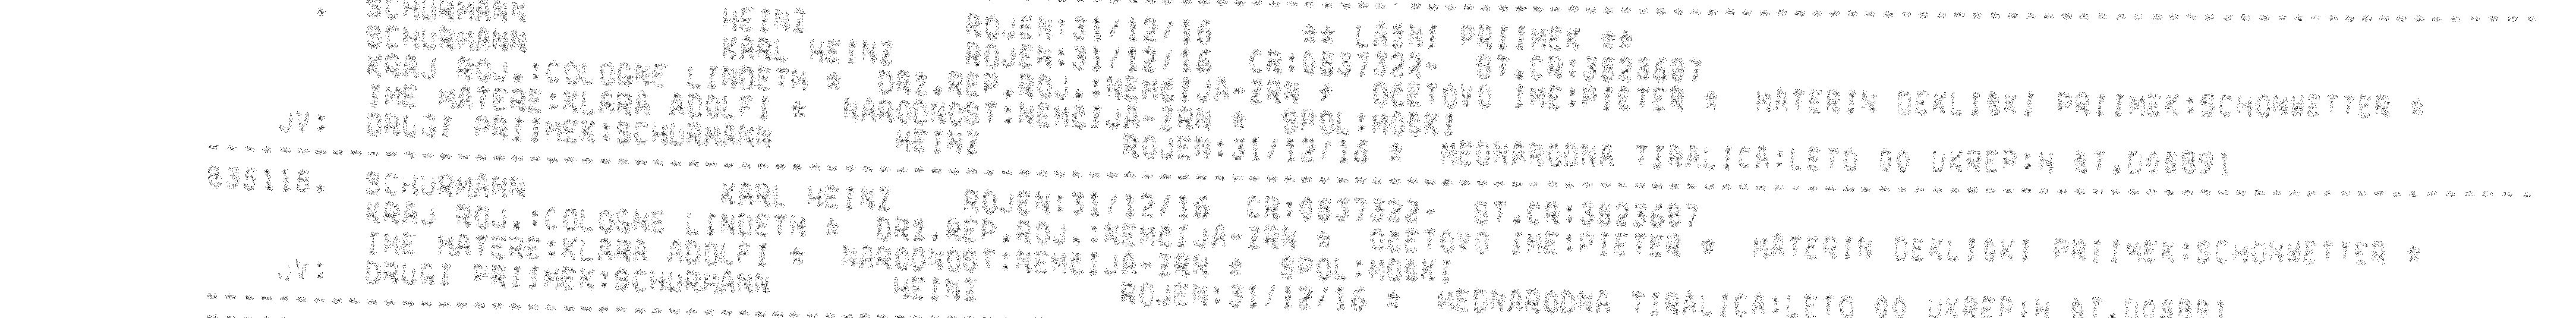 SCHURMANN HEINZ ROJEN:31/12/16 ** LAZNI PRIIMEK **
SCHURMANN KARL HEINZ ROJEN:31/12/16 CR:0837322- ST.CR:3823687
KRAJ ROJ.:COLOGNE LINDETH * DRZ.REP.ROJ.:NEMCIJA-ZRN * OCETOVO IME:PIETER * MATERIN DEKLISKI PRIIMEK:SCHONWETTER *
IME MATERE:KLARA ADOLFI * NARODNOST:NEMCIJA-ZRN * SPOL:MOSKI
JV: DRUGI PRIIMEK:SCHURMANN HEINZ ROJEN:31/12/16 * MEDNARODNA TIRALICA:LETO 00 UKREP:H ST.D08891
835118. SCHURMANN KARL HEINZ ROJEN:31/12/16 CR:0837322- ST.CR:3823687
KRAJ ROJ.:COLOGNE LINDETH * DRZ.REP.ROJ.:NEMCIJA-ZRN * OCETOVO IME:PIETER * MATERIN DEKLISKI PRIIMEK:SCHONWETTER *
IME MATERE:KLARA ADOLFI * NARODNOST:NEMCIJA-ZRN * SPOL:MOSKI
JV: DRUGI PRIIMEK:SCHURMANN HEINZ ROJEN:31/12/16 * MEDNARODNA TIRALICA:LETO 00 UKREP:H ST.D08891